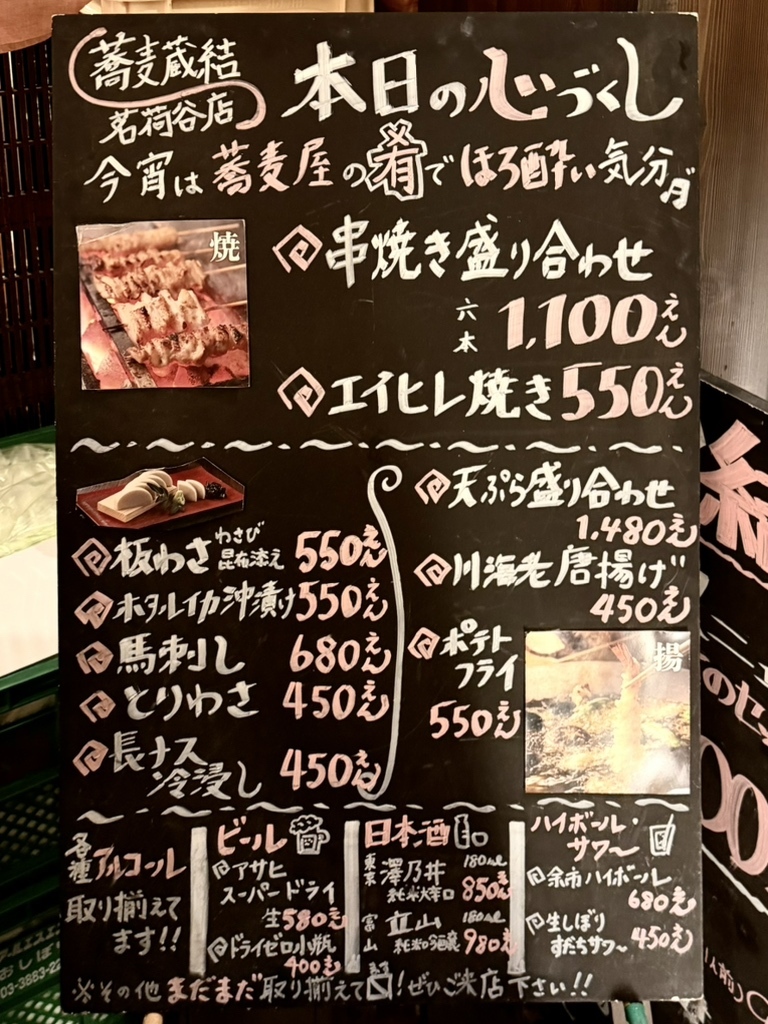 蕎麦蔵結
茗荷谷店
本日の心づくし
今宵は蕎麦屋の肴でほろ酔い気分
焼
串焼き盛り合わせ
六本
1,100えん
エイヒレ焼き550えん
板わさ わさび昆布添え 550えん
ホタルイカ沖漬け550えん
馬刺し 680えん
とりわさ 450えん
長ナス
冷浸し 450えん
天ぷら盛り合わせ
1,480えん
川海老唐揚げ
450えん
ポテト
フライ
550えん
揚
各種アルコール
取り揃えて
ます!!
ビール
アサヒ
スーパードライ
生580えん
ドライゼロ小瓶
400えん
日本酒
東京 澤乃井 180ml
純米大辛口 850えん
富山 立山 180ml
純米吟醸 980えん
ハイボール・
サワー
余市ハイボール
680えん
生しぼり
すだちサワー 450えん
※その他まだまだ取り揃えて〼!ぜひご来店下さい!!
のセ
00